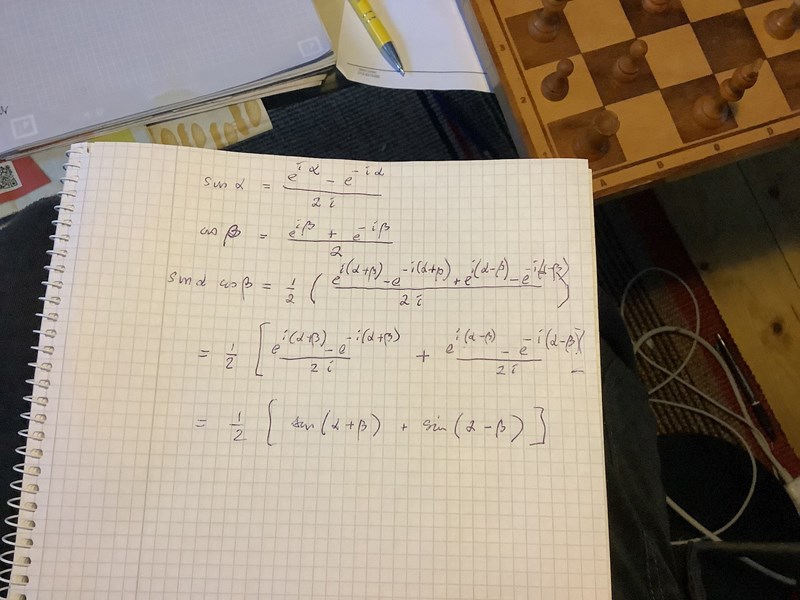 sin α = (e^{iα} - e^{-iα}) / 2i
cos β = (e^{iβ} + e^{-iβ}) / 2
sin α cos β = 1/2 ( (e^{i(α+β)} - e^{-i(α+β)} + e^{i(α-β)} - e^{-i(α-β)}) / 2i )
= 1/2 [ (e^{i(α+β)} - e^{-i(α+β)}) / 2i + (e^{i(α-β)} - e^{-i(α-β)}) / 2i ]
= 1/2 [ sin(α+β) + sin(α-β) ]